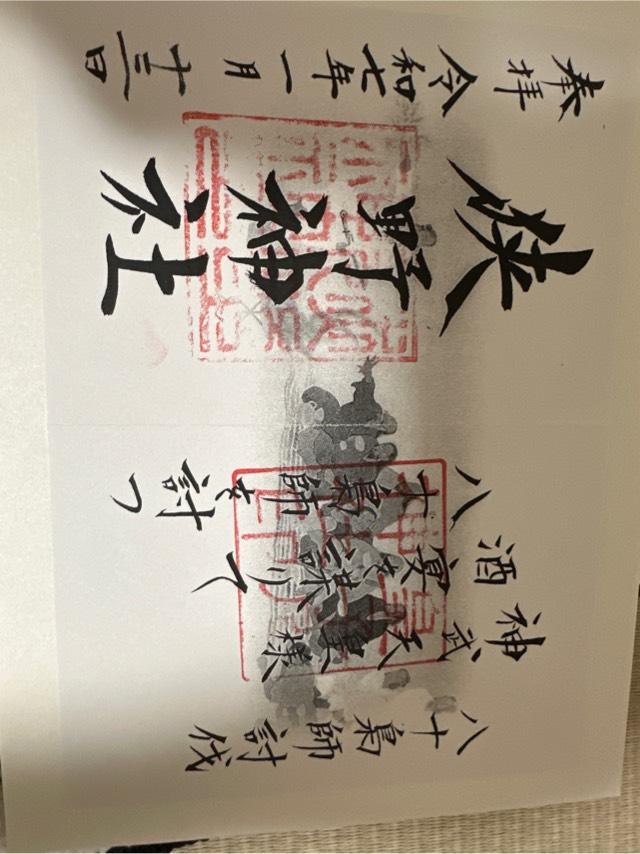 八十梟師討伐
神武天皇様
酒宴を謀りて
八十梟師を討つ
狭野神社
奉拝 令和七年一月十三日